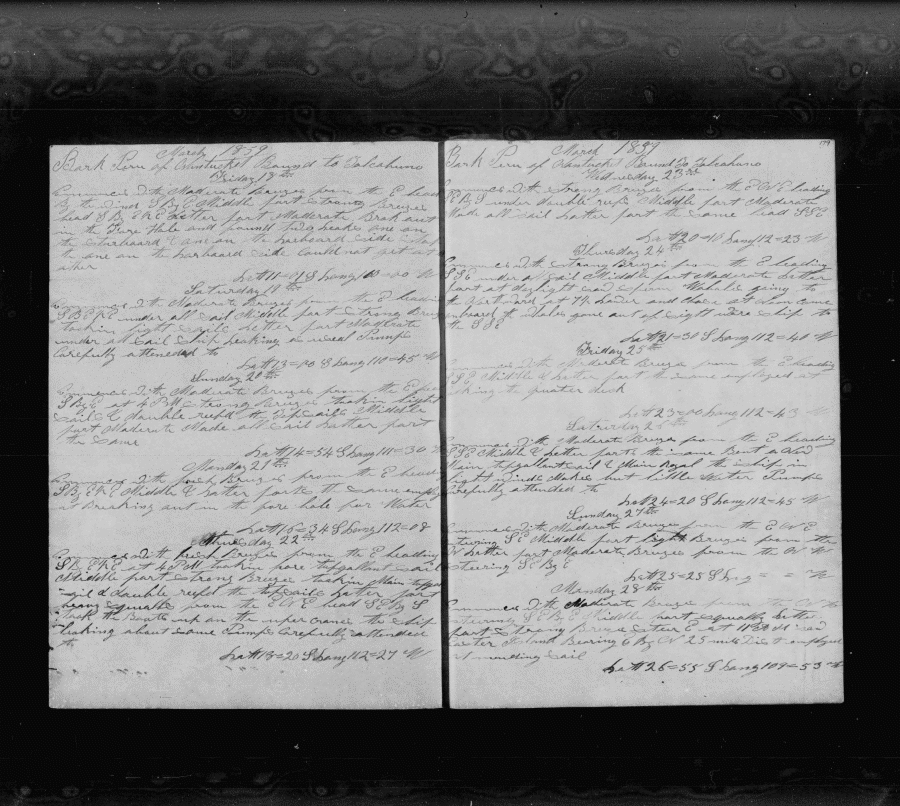 March 1859
Bark of Nantucket Bound to Talcahuno
Friday 18th
Commences With Moderate Breezes from the E head
By the Wind S By E Middle part strong Breezes
head S By E Latter part Moderate Brok out
in the Fore Hole and found two leakes one on
the starboard & one on the larboard side
the one on the larboard side Could not get at
other
Latt 11=01 S Long 110=00 W
Saturday 19th
Commences With Moderate Breezes from the E heading
under all sail Middle part strong Breezes
tookin light sails Latter part Moderate
under all sail ship leaking as usual Pumps
Carefully attended to
Latt 13=00 S Long 110=45 W
Sunday 20th
Commences With Moderate Breezes from the E
S By E at 4 PM strong Breezes tookin light
sails & double reefd the topsails Middle
part Moderate Made all sail Latter part
the same
Latt 14=54 S Long 111=30
Monday 21st
Commences With fresh Breezes from the E heading
Middle & Latter parts the same employ
at Breaking out in the fore hole for Water
Latt 16=34 S Long 112=08
Tuesday 22nd
Commences With fresh Breezes from the E heading
at 4 PM tookin fore topgallant sail
Middle part strong Breezes tookin Main topgal
sail & double reefd the topsails Latter part
heavy squalls from the head S By S
took the Boats up on the uper cranes the ship
leaking about same Pumps Carefully attended
to
Latt 18=20 S Long 112=27 W
March 1859
179
Bark of Nantucket Bound To Talcahuno
Wednesday 23rd
Commences With strong Breezes from the heading
under double reefs Middle part Moderate
Made all sail Latter part the same head SSE
Latt 20=10 Long 112=23 W
Thursday 24th
Commences With strong Breezes from the E heading
SSE under all sail Middle part Moderate Latter
part at daylight saw from Whales going to
the Northward at 7 Lower and chase at noon come
onboard the Whales gone out of sight ship to
the SSE
Latt 21=50 S Long 112=40 W
Friday 25th
Commences With Moderate Breezes from the E heading
SSE Middle & Latter part the same employed at
the quarter deck
Latt 23=00 Long 112=43 W
Saturday 26th
Commences With Moderate Breezes from the E heading
SSE Middle & Latter parts the same Bent a New
Main topgallant sail & Main Royal the ship in
light Winds Makes but little Water Pumps
Carefully attended to
Latt 24=20 S Long 112=45 W
Sunday 27th
Commences With Moderate Breezes from the E
steering SE Middle part light Breezes from the
Latter part Moderate Breezes from the W
steering SE By E
Latt 25=25 S Long = = W
Monday 28th
Commences With Moderate Breezes from the
steering S E By E Middle part squally Latter
part strong Breezes steer E at 11 AM saw
Easter Island Bearing By 25 miles Dist employed
at mending sail
Latt 26=55 S Long 109=53 W